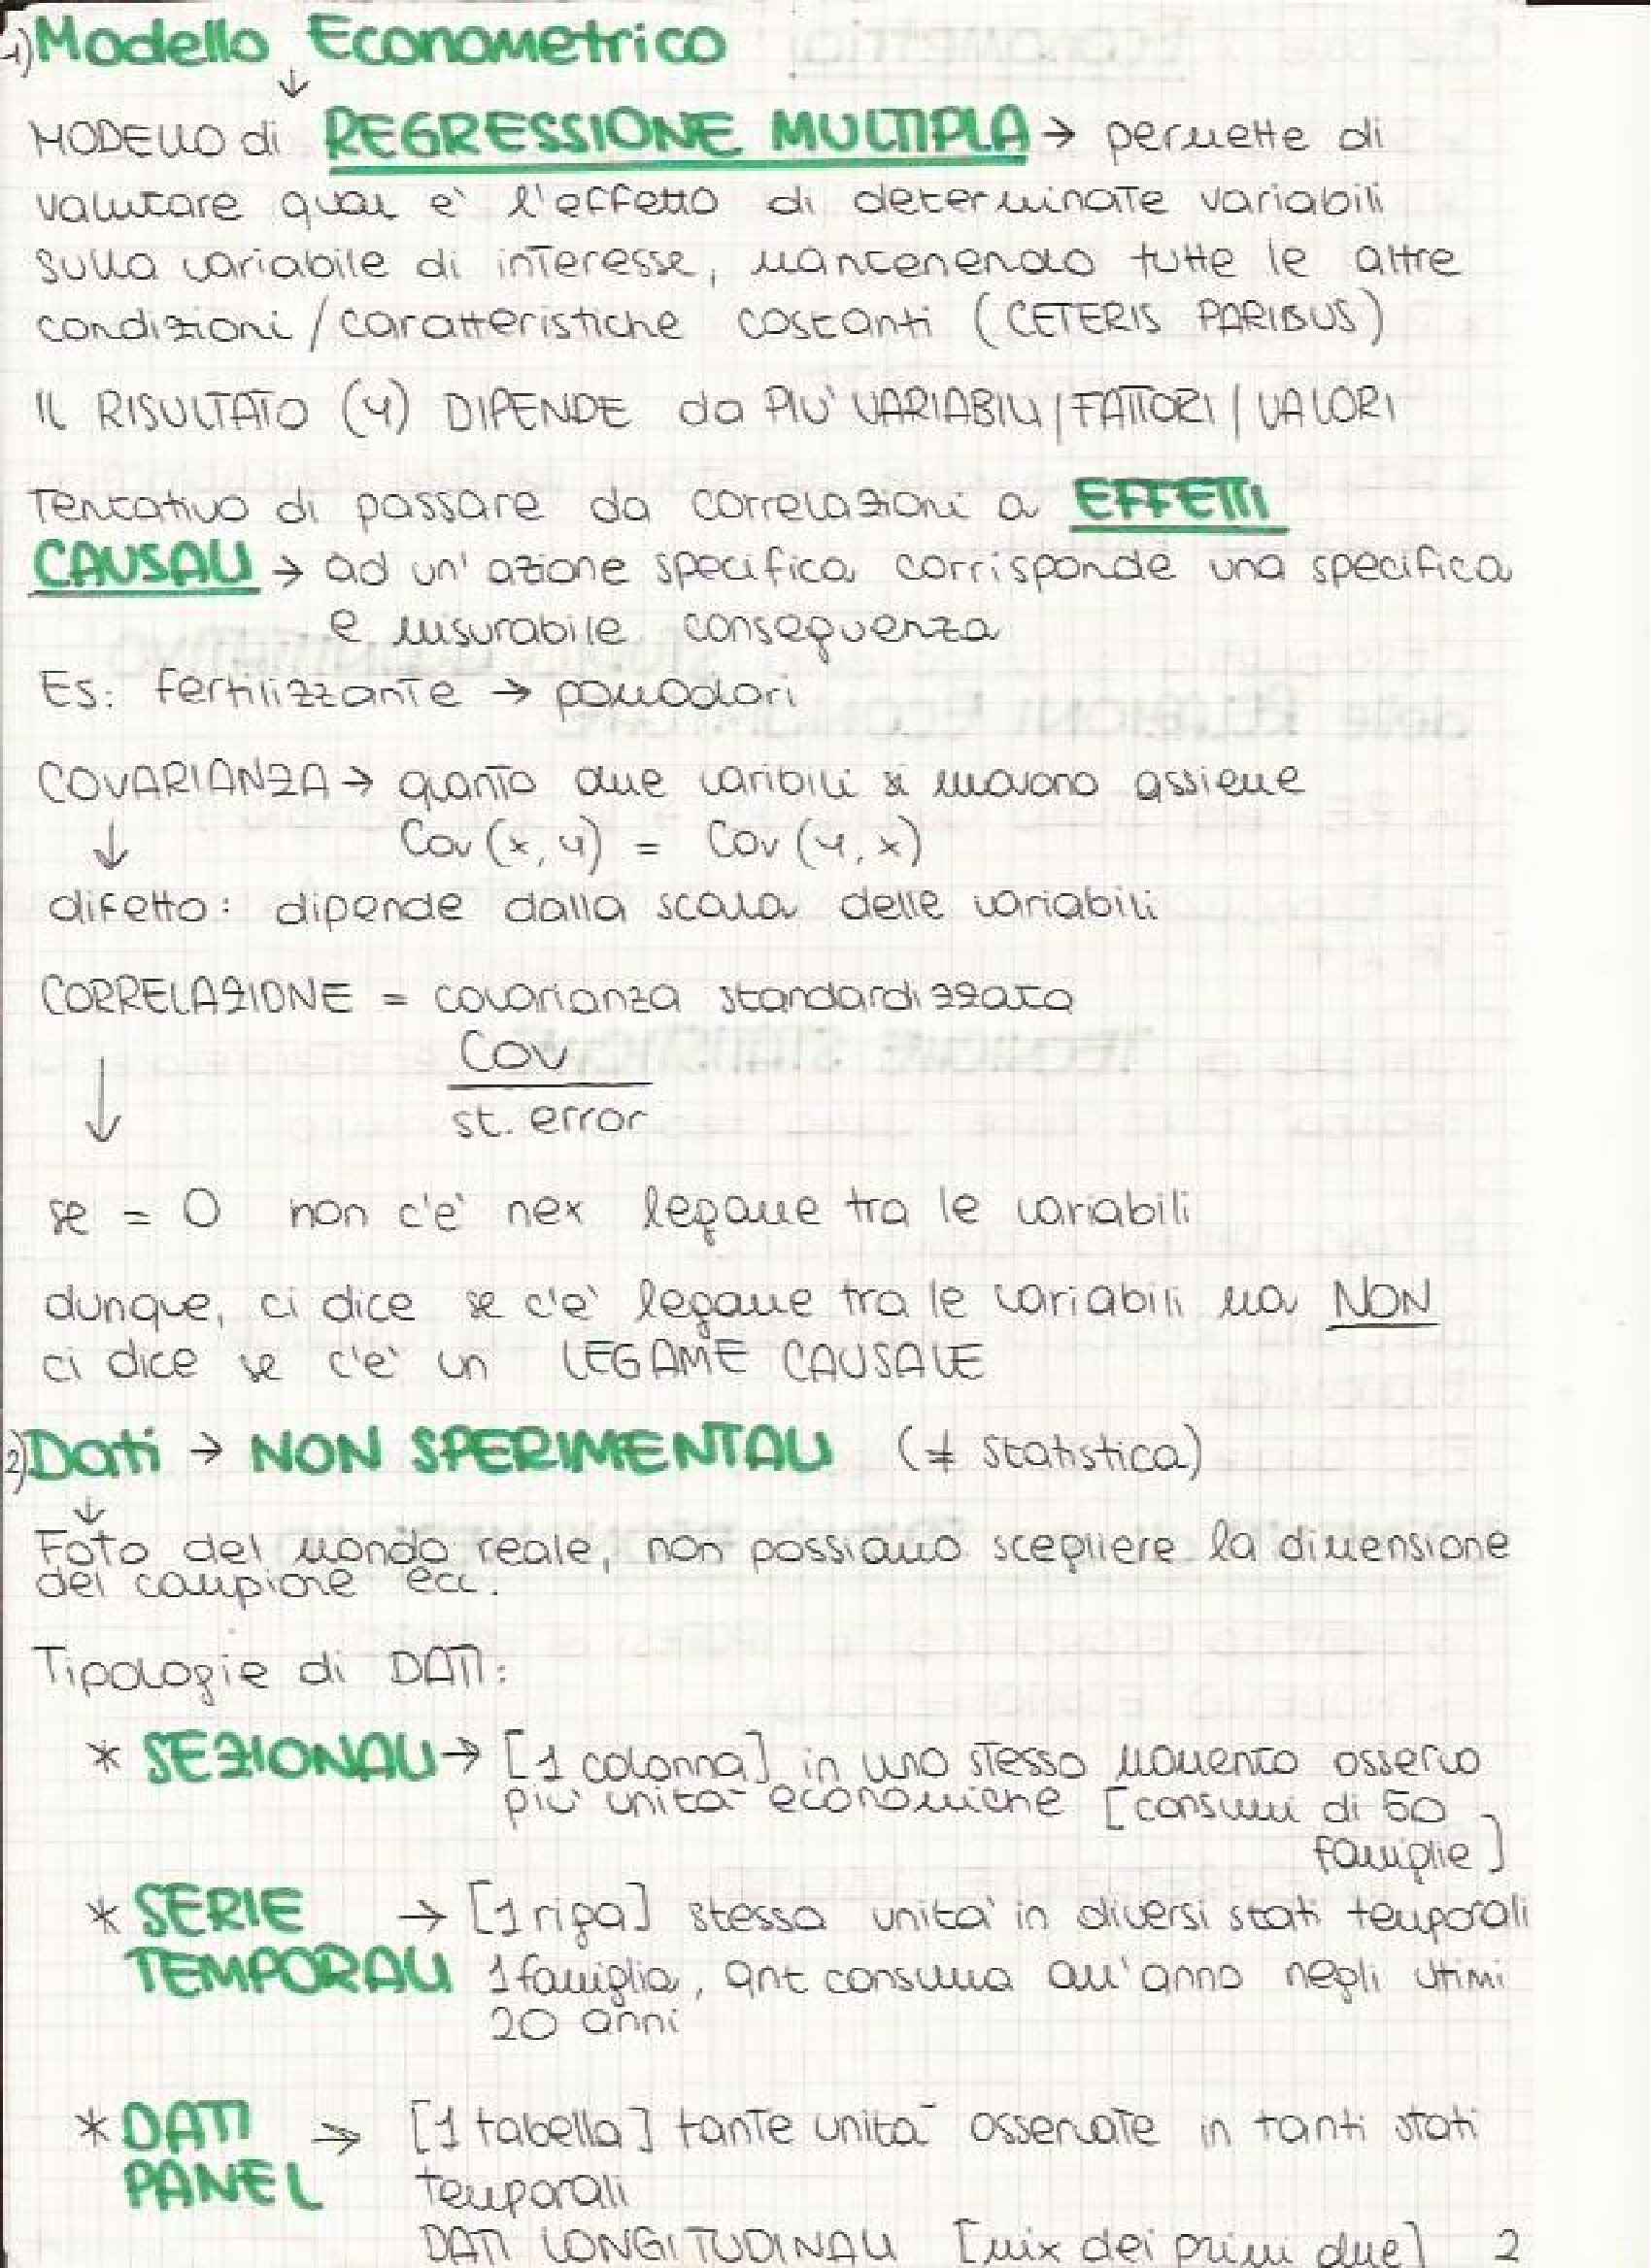 1) Modello Econometrico
↓
MODELLO di REGRESSIONE MULTIPLA → permette di
valutare qual è l'effetto di determinate variabili
sulla variabile di interesse, mantenendo tutte le altre
condizioni/caratteristiche costanti (CETERIS PARIBUS)
IL RISULTATO (Y) DIPENDE da PIU' VARIABILI/FATTORI/VALORI
Tentativo di passare da correlazioni a EFFETTI
CAUSALI → ad un'azione specifica corrisponde una specifica
e misurabile conseguenza
Es: fertilizzante → pomodori
COVARIANZA → quanto due varibili si muovono assieme
↓ Cov (x, y) = Cov (y, x)
difetto: dipende dalla scala delle variabili
CORRELAZIONE = covarianza standardizzata
↓ Cov
st. error
se = 0 non c'è nex legame tra le variabili
dunque, ci dice se c'è legame tra le variabili ma NON
ci dice se c'è un LEGAME CAUSALE
2) Dati → NON SPERIMENTALI (≠ statistica)
↓
Foto del mondo reale, non possiamo scegliere la dimensione
del campione ecc.
Tipologie di DATI:
* SEZIONALI → [1 colonna] in uno stesso momento osservo
più unità economiche [consumi di 50
famiglie]
* SERIE → [1 riga] stessa unità in diversi stati temporali
TEMPORALI 1 famiglia, qnt consuma all'anno negli utimi
20 anni
* DATI → [1 tabella] tante unità osservate in tanti stati
PANEL temporali
DATI LONGITUDINALI [mix dei primi due] 2